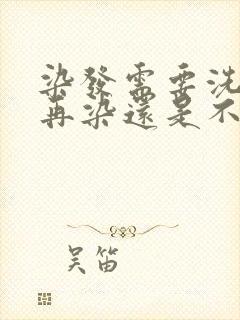 染發需要洗
再染還是不
吴笛